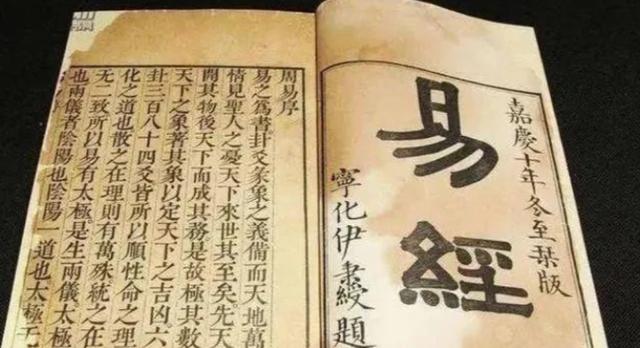 嘉慶十年冬至栞版
易經
寧化伊秉綬題
周易序
易之爲書卦爻彖象之義備而天地萬
情見聖人之憂天下來世其至矣先天
開其物後天下而成其務是故極其數
天下之象著其象以定天下之吉凶六
卦三百八十四爻皆所以順性命之理
化之道也散之在理則有萬殊統之在
无二致所以易有太極是生兩儀太極
也兩儀者陰陽也陰陽一道也太極无